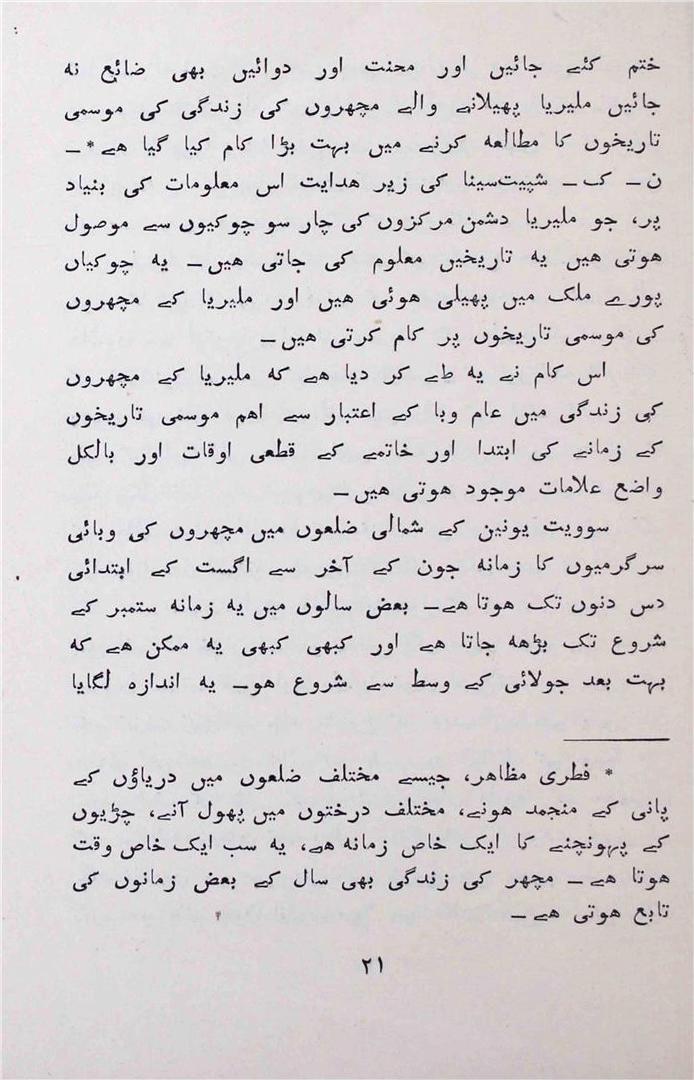 ختم کئے جائیں اور محنت اور دوائیں بھی ضائع نہ
جائیں ملیریا پھیلانے والے مچھروں کی زندگی کی موسمی
تاریخوں کا مطالعہ کرنے میں بہت بڑا کام کیا گیا ھے* ـ
ن ـ ک ـ شپیت سینا کی زیر ھدایت اس معلومات کی بنیاد
پر، جو ملیریا دشمن مرکزوں کی چار سو چوکیوں سے موصول
ھوتی ھیں یہ تاریخیں معلوم کی جاتی ھیں ـ یہ چوکیاں
پورے ملک میں پھیلی ھوئی ھیں اور ملیریا کے مچھروں
کی موسمی تاریخوں پر کام کرتی ھیں ـ
اس کام نے یہ طے کر دیا ھے کہ ملیریا کے مچھروں
کی زندگی میں عام وبا کے اعتبار سے اھم موسمی تاریخوں
کے زمانے کی ابتدا اور خاتمے کے قطعی اوقات اور بالکل
واضع علامات موجود ھوتی ھیں ـ
سوویت یونین کے شمالی ضلعوں میں مچھروں کی وبائی
سرگرمیوں کا زمانہ جون کے آخر سے اگست کے ابتدائی
دس دنوں تک ھوتا ھے ـ بعض سالوں میں یہ زمانہ ستمبر کے
شروع تک بڑھ جاتا ھے اور کبھی کبھی یہ ممکن ھے کہ
بہت بعد جولائی کے وسط سے شروع ھو ـ یہ اندازہ لگایا
* فطری مظاھر، جیسے مختلف ضلعوں میں دریاؤں کے
پانی کے منجمد ھونے، مختلف درختوں میں پھول آنے، چڑیوں
کے پہونچنے کا ایک خاص زمانہ ھے، یہ سب ایک خاص وقت
ھوتا ھے ـ مچھر کی زندگی بھی سال کے بعض زمانوں کی
تابع ھوتی ھے ـ
۲۱